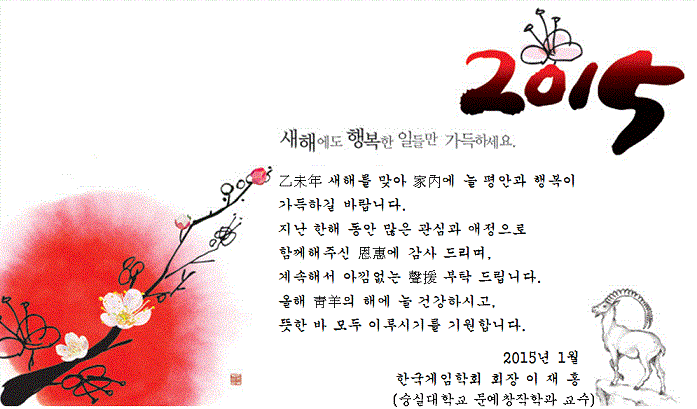 2015
새해에도 행복한 일들만 가득하세요.
乙未年 새해를 맞아 家內에 늘 평안과 행복이
가득하길 바랍니다.
지난 한해 동안 많은 관심과 애정으로
함께해주신 恩惠에 감사 드리며,
계속해서 아낌없는 聲援 부탁 드립니다.
올해 靑羊의 해에 늘 건강하시고,
뜻한 바 모두 이루시기를 기원합니다.
2015년 1월
한국게임학회 회장 이 재 홍
(숭실대학교 문예창작학과 교수)